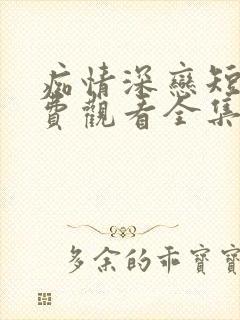 痴情深戀短
費觀看全集
多余的乖寶寶